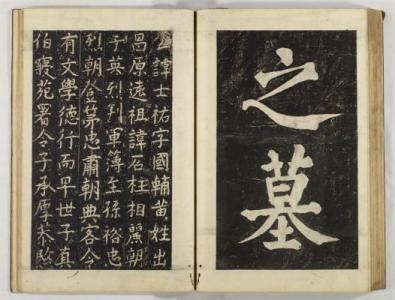 之墓
諱士祐字國輔黄姓出
昌原遠祖諱石柱相麗朝
子英烈判軍簿生孫裕忠
烈朝登第忠肅朝典客令
有文學德行而早世子真
伯寢苑署令子本厚恭